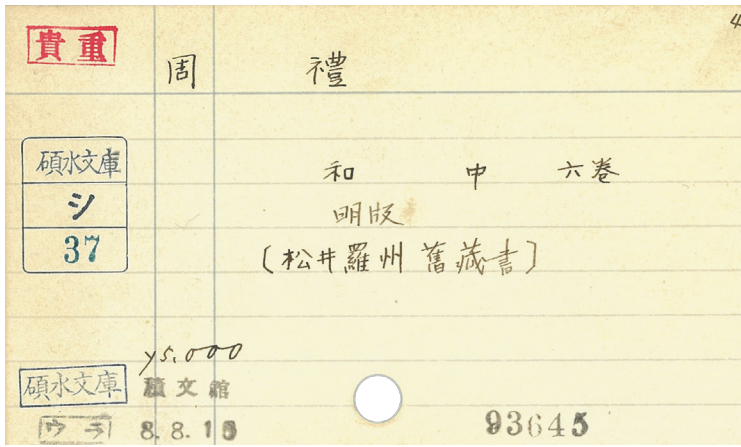 4
貴重
周 禮
碩水文庫
シ
37
和 中 六巻
明版
〔松井羅州 舊蔵書〕
¥5.000
碩水文庫 積文館
ウラ 8.8.15
93645